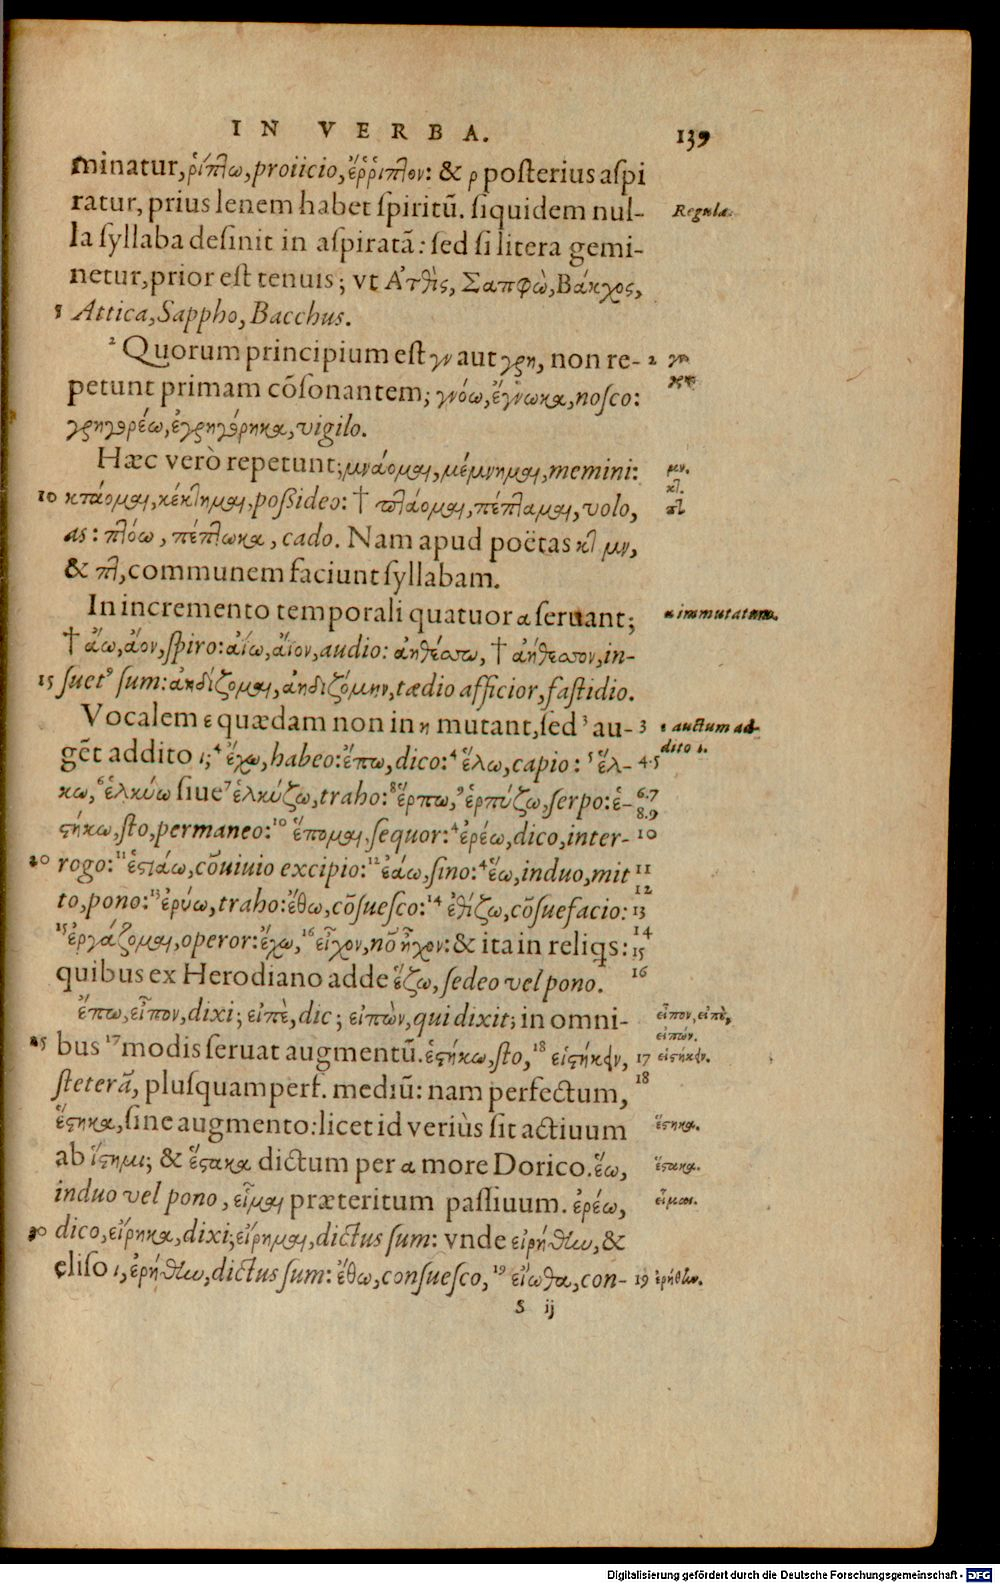 IN VERBA. 139
minatur, ῥίπτω, proiicio, ἔῤῥιπτον: & ρ posterius aspi
ratur, prius lenem habet spiritū. siquidem nul- Regula.
la syllaba desinit in aspiratā: sed si litera gemi-
netur, prior est tenuis; vt Ἀτθὶς, Σαπφὼ, Βάκχος,
5 Attica, Sappho, Bacchus.
² Quorum principium est γν aut γρη, non re- 2 γν
petunt primam cōsonantem; γνόω, ἔγνωκα, nosco:
γρηγορέω, ἐγρηγόρηκα, vigilo.
Hæc verò repetunt; μνάομαι, μέμνημαι, memini: μν.
10 κτάομαι, κέκτημαι, possideo: † πτάομαι, πέπταμαι, volo, κτ. πτ
as: πτόω, πέπτωκα, cado. Nam apud poëtas κτ μν,
& πτ, communem faciunt syllabam.
In incremento temporali quatuor α seruant; α immutatum.
† ἄω, ἄον, spiro: ἀΐω, ἄϊον, audio: ἀηθέσσω, † ἀήθεσσον, in-
15 suet⁹ sum: ἀηδίζομαι, ἀηδιζόμην, tædio afficior, fastidio.
Vocalem ε quædam non in η mutant, sed ³ au- 3 ε auctum ad-
gēt addito ι; ⁴ ἔχω, habeo: ἔπω, dico: ⁴ ἕλω, capio: ⁵ ἕλ- 4.5 dito ι.
κω, ⁶ ἑλκύω siue ⁷ ἑλκύζω, traho: ⁸ ἕρπω, ⁹ ἑρπύζω, serpo: ἑ- 6.7 8.9
στήκω, sto, permaneo: ¹⁰ ἕπομαι, sequor: ⁴ ἐρέω, dico, inter- 10
20 rogo: ¹¹ ἑστιάω, cōuiuio excipio: ¹² ἐάω, sino: ⁴ ἕω, induo, mit 11
to, pono: ¹³ ἐρύω, traho: ἔθω, cōsuesco: ¹⁴ ἐθίζω, cōsuefacio: 12 13
¹⁵ ἐργάζομαι, operor: ἔχω, ¹⁶ εἶχον, nō ἦχον: & ita in reliqs: 14 15
quibus ex Herodiano adde ἕζω, sedeo vel pono. 16
ἔπω, εἶπον, dixi; εἰπὲ, dic; εἰπὼν, qui dixit; in omni- εἶπον, εἰπὲ, εἰπών.
25 bus ¹⁷ modis seruat augmentū. ἑστήκω, sto, ¹⁸ εἱστήκειν, 17 εἱστήκειν.
steterā, plusquamperf. mediū: nam perfectum, 18
ἕστηκα, sine augmento: licet id veriùs sit actiuum ἕστηκα.
ab ἵστημι; & ἕστακα dictum per α more Dorico. ἕω, ἕστακα.
induo vel pono, εἷμαι præteritum passiuum. ἐρέω, εἷμαι.
30 dico, εἴρηκα, dixi; εἴρημαι, dictus sum: vnde εἰρήθην, &
eliso ι, ἐρήθην, dictus sum: ἔθω, consuesco, ¹⁹ εἴωθα, con- 19 ἐρήθην.
S ij
Digitalisierung gefördert durch die Deutsche Forschungsgemeinschaft - DFG